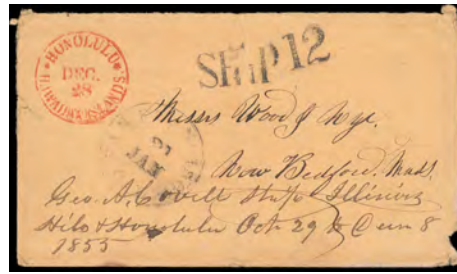 HONOLULU
DEC.
28
HAWAIIAN ISLANDS
SHIP 12
JAN
Messrs Wood & Nye.
New Bedford. Mass.
Geo. A. Covill Ship Illinois
Hilo & Honolulu Oct 29 &
1855